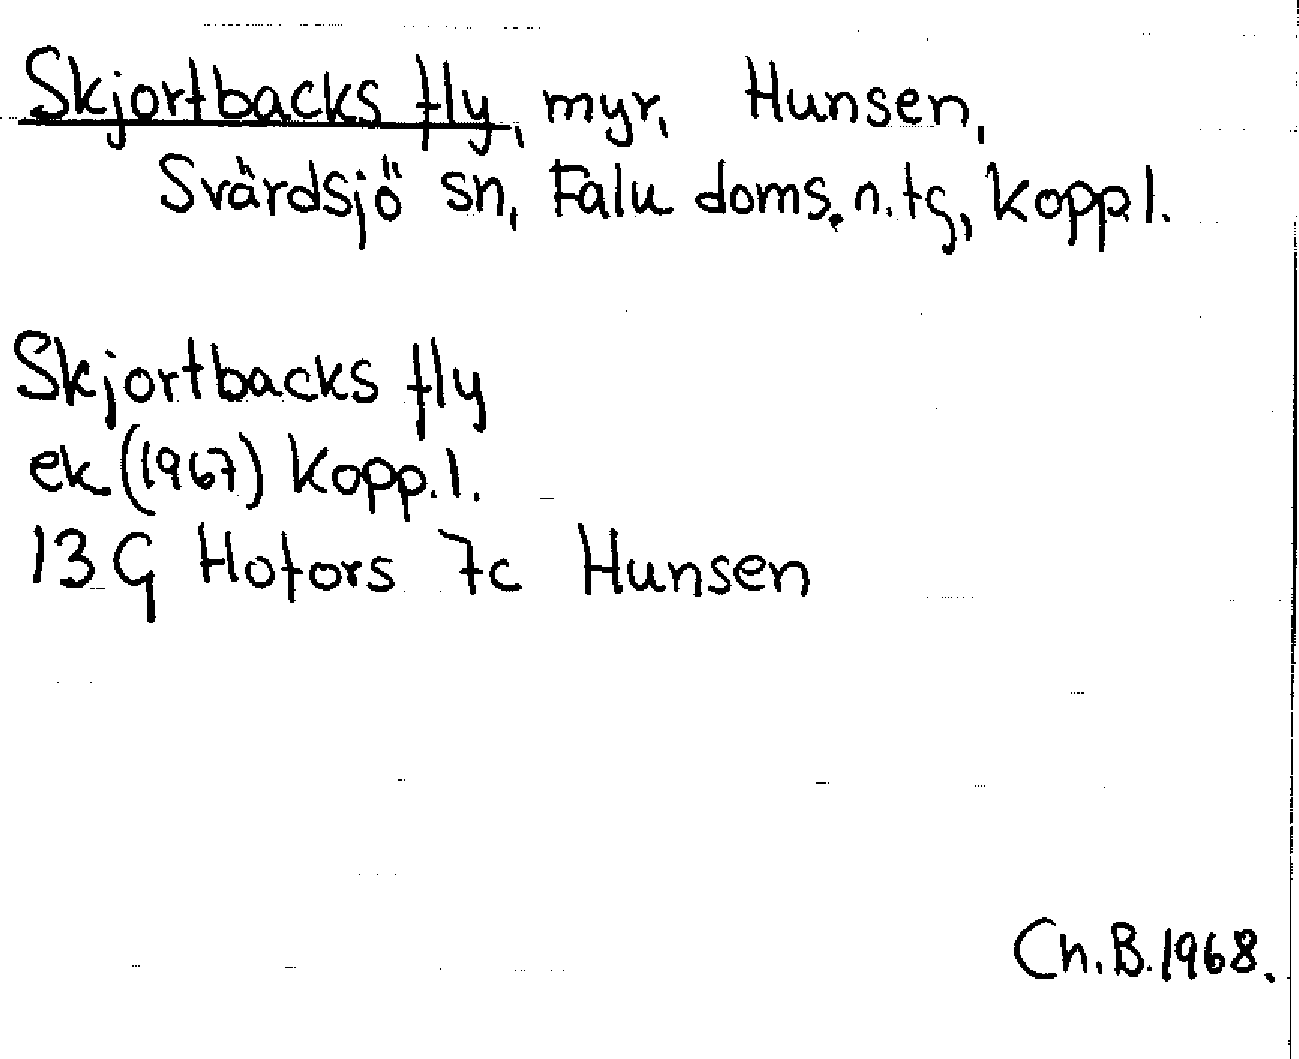 Skjortbacks fly, myr, Hunsen,
Svärdsjö sn, Falu doms. n. tg, Koppl.
Skjortbacks fly
ek (1967) Kopp.l.
13 G Hofors 7c Hunsen
Ch.B.1968.